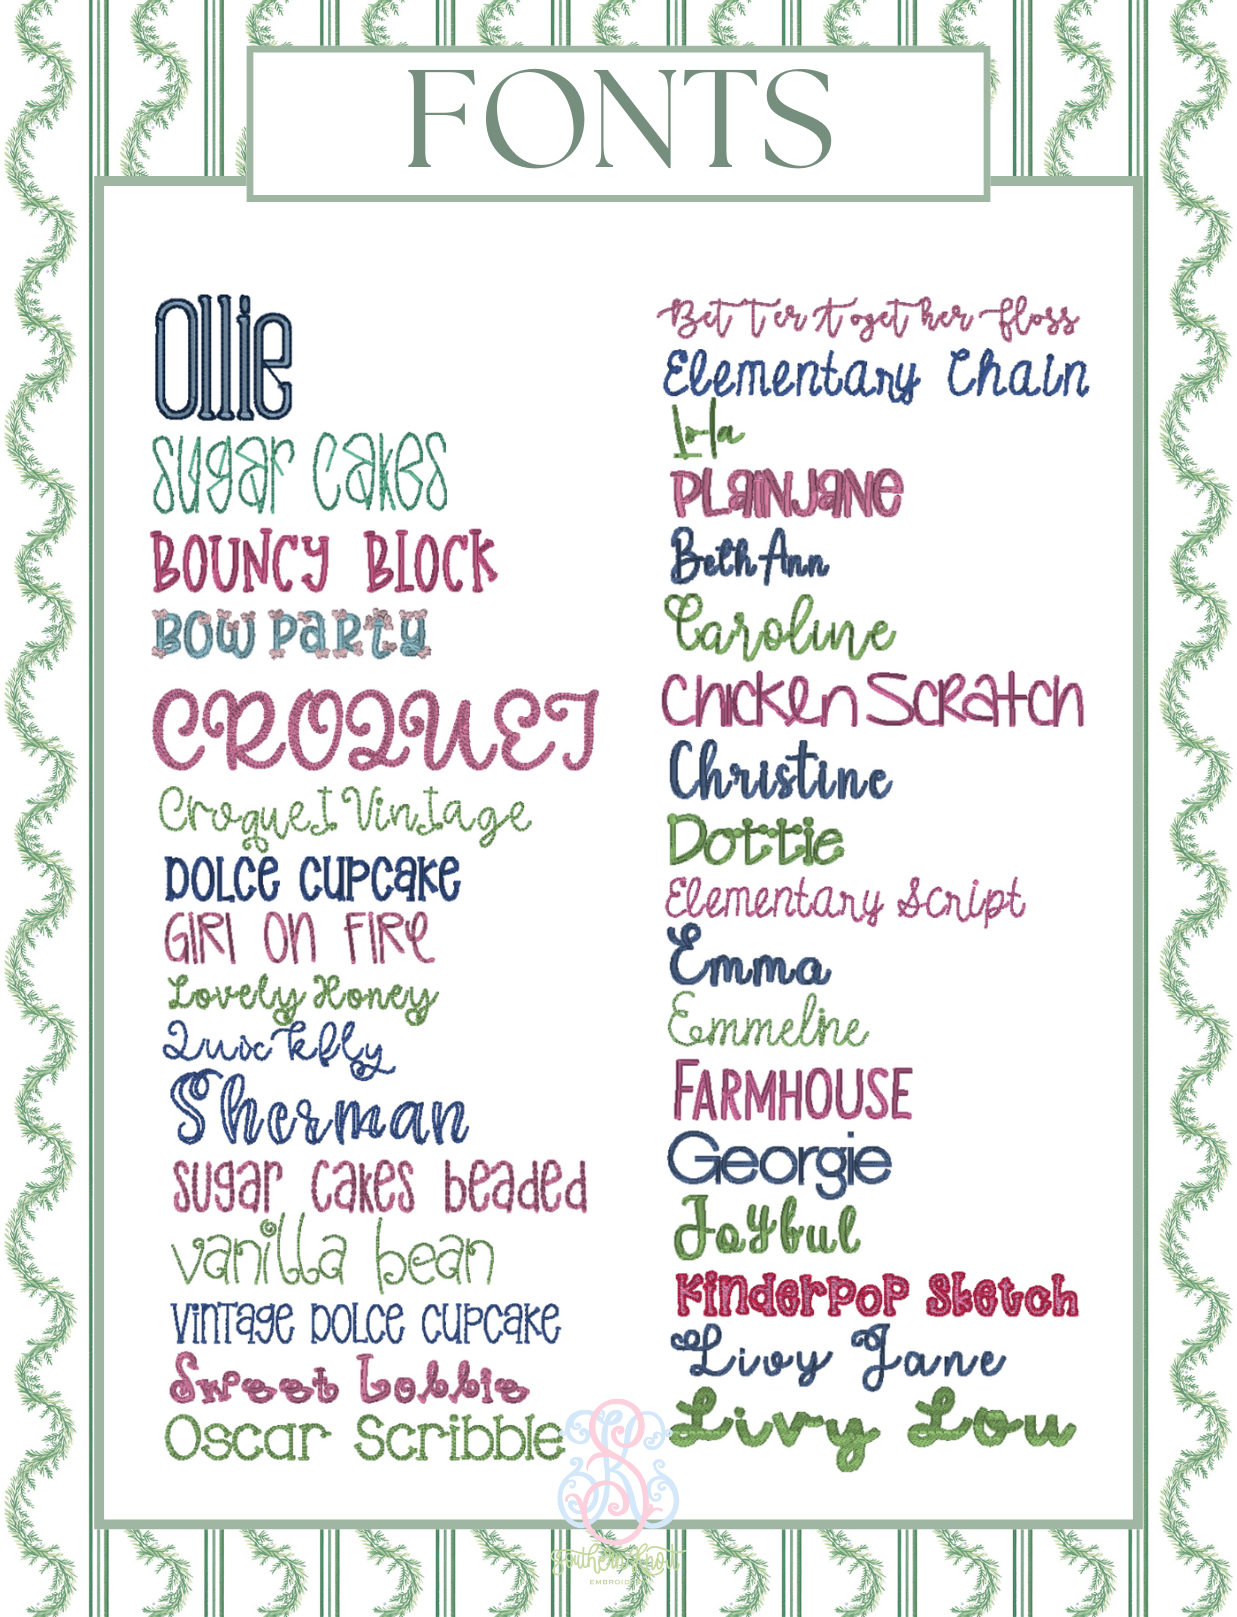 FONTS
Ollie
Sugar Cakes
BOUNCY BLOCK
BOW PARTY
CROQUET
Croquet Vintage
DOLCE CUPCAKE
GIRL ON FIRE
Lovely Honey
Quickfly
Sherman
sugar cakes beaded
vanilla bean
VINTAGE DOLCE CUPCAKE
Sweet Lollie
Oscar Scribble
Better Together Floss
Elementary Chain
Lola
PLAINJANE
Beth Ann
Caroline
Chicken Scratch
Christine
Dottie
Elementary Script
Emma
Emmeline
FARMHOUSE
Georgie
Joyful
Kinderpop Sketch
Livy Jane
Livy Lou
Southern Knot
EMBROIDERY